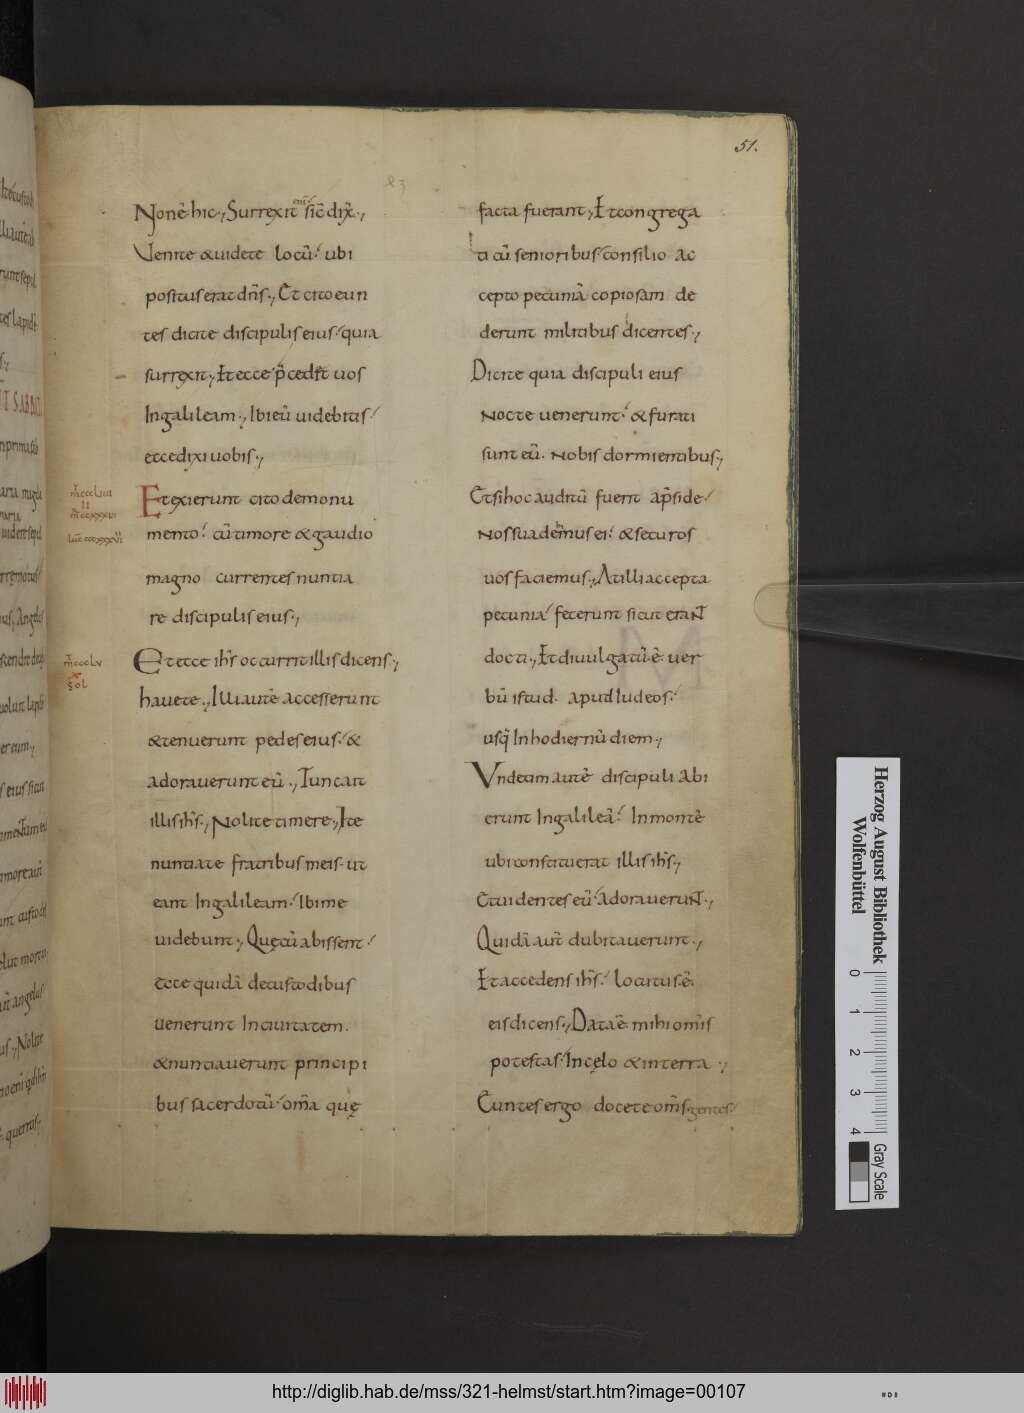 51.
Non ē hic., Surrexit eni͂ sic̄ dix̄.,
Venite & uidete locū. ubi
positus erat dn̄s., Et cito eun
tes dicite discipulis eius quia
surrexit., Et ecce p̄cedit uos
In galileam., Ibi eū uidebitis
ecce dixi uobis.,
Et exierunt cito de monu
mento. cū timore & gaudio
magno currentes nuntia
re discipulis eius.,
Et ecce ih̄s occurrit illis dicens.,
hauete., Illi autē accesserunt
& tenuerunt pedes eius. &
adorauerunt eū., Tunc ait
illis ih̄s., Nolite timere., Ite
nuntiate fratribus meis. ut
eant In galileam. Ibi me
uidebunt., Quę cū abissent.
Ecce quidā de custodibus
uenerunt In ciuitatem.
& nuntiauerunt principi
bus sacerdotū. om̄a quę
facta fuerant., Et congrega
ti cū senioribus consilio ac
cepto pecuniā copiosam de
derunt militibus dicentes.,
Dicite quia discipuli eius
Nocte uenerunt. & furati
sunt eū. Nobis dormientibus.,
Et si hoc auditū fuerit ap̄side
Nos suadebimus ei. & securos
uos faciemus., At illi accepta
pecunia fecerunt sicut erant
docti., Et diuulgatū ē. uer
bū istud. apud Iudeos.
usq̄ In hodiernū diem.,
Vndecim autē discipuli abi
erunt In galileā. In montē
ubi constituerat illis ih̄s.,
Et uidentes eū adorauerunt.,
Quidā aut̄ dubitauerunt.,
Et accedens ih̄s. locutus ē.
eis dicens., Data ē mihi om̄is
potestas. In cęlo & in terra.,
Euntes ergo docete om̄s gentes
Herzog August Bibliothek
Wolfenbüttel
0 1 2 3 4
Gray Scale
http://diglib.hab.de/mss/321-helmst/start.htm?image=00107